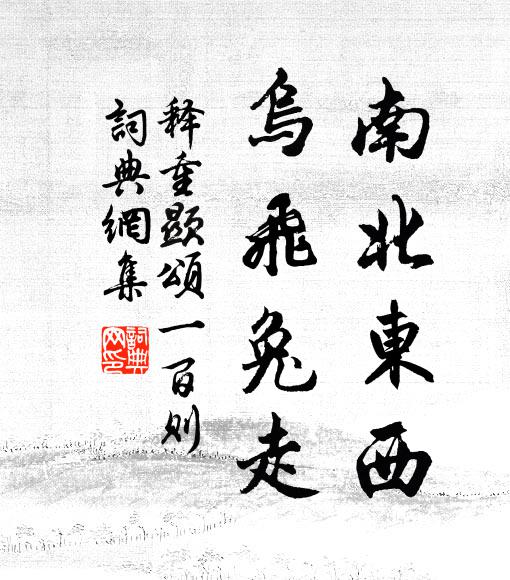 南北東西
烏飛兔走
释重顯頌一百则
詞典網集
詞典网印